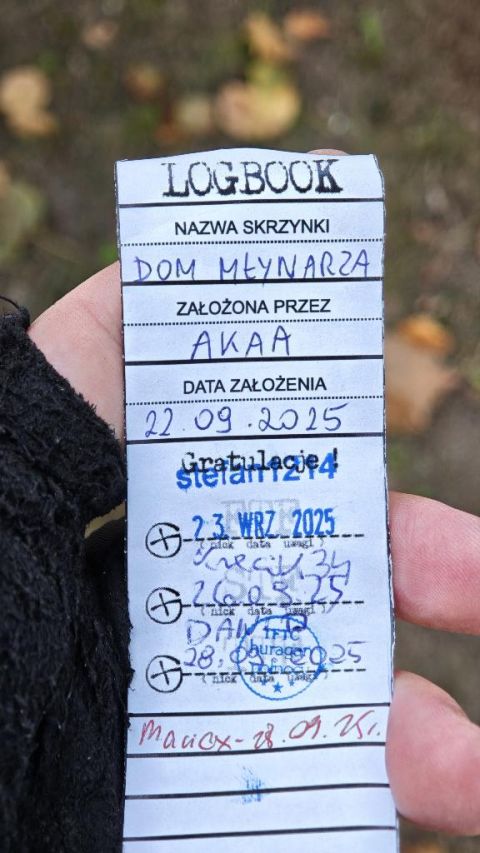 LOGBOOK
NAZWA SKRZYNKI
DOM MŁYNARZA
ZAŁOŻONA PRZEZ
AKAA
DATA ZAŁOŻENIA
22.09.2025
Gratulacje!
stefan1214
23. WRZ. 2025
(nick data uwagi)
26.09.25
(nick data uwagi)
28.09.2025
huragan
(nick data uwagi)
28.09.25r.